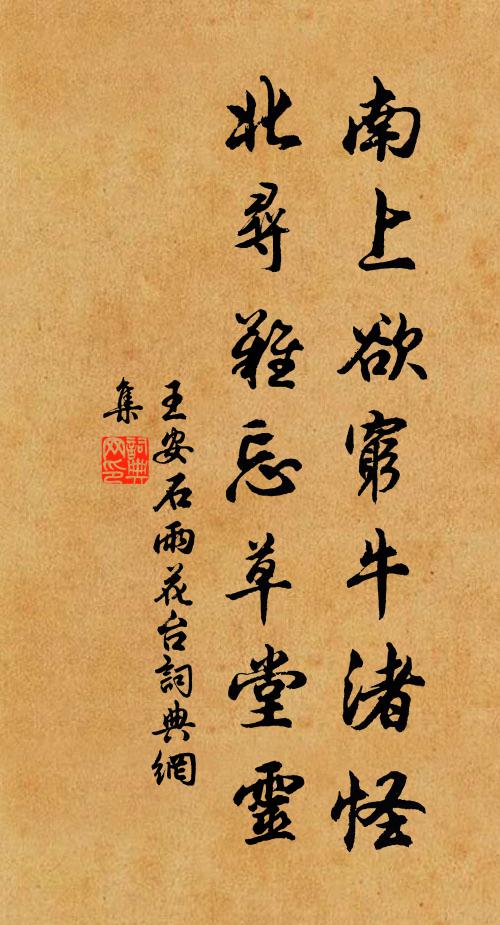 南上欲窮牛渚怪
北尋難忘草堂靈
王安石雨花台詞典網
集
詞典網印